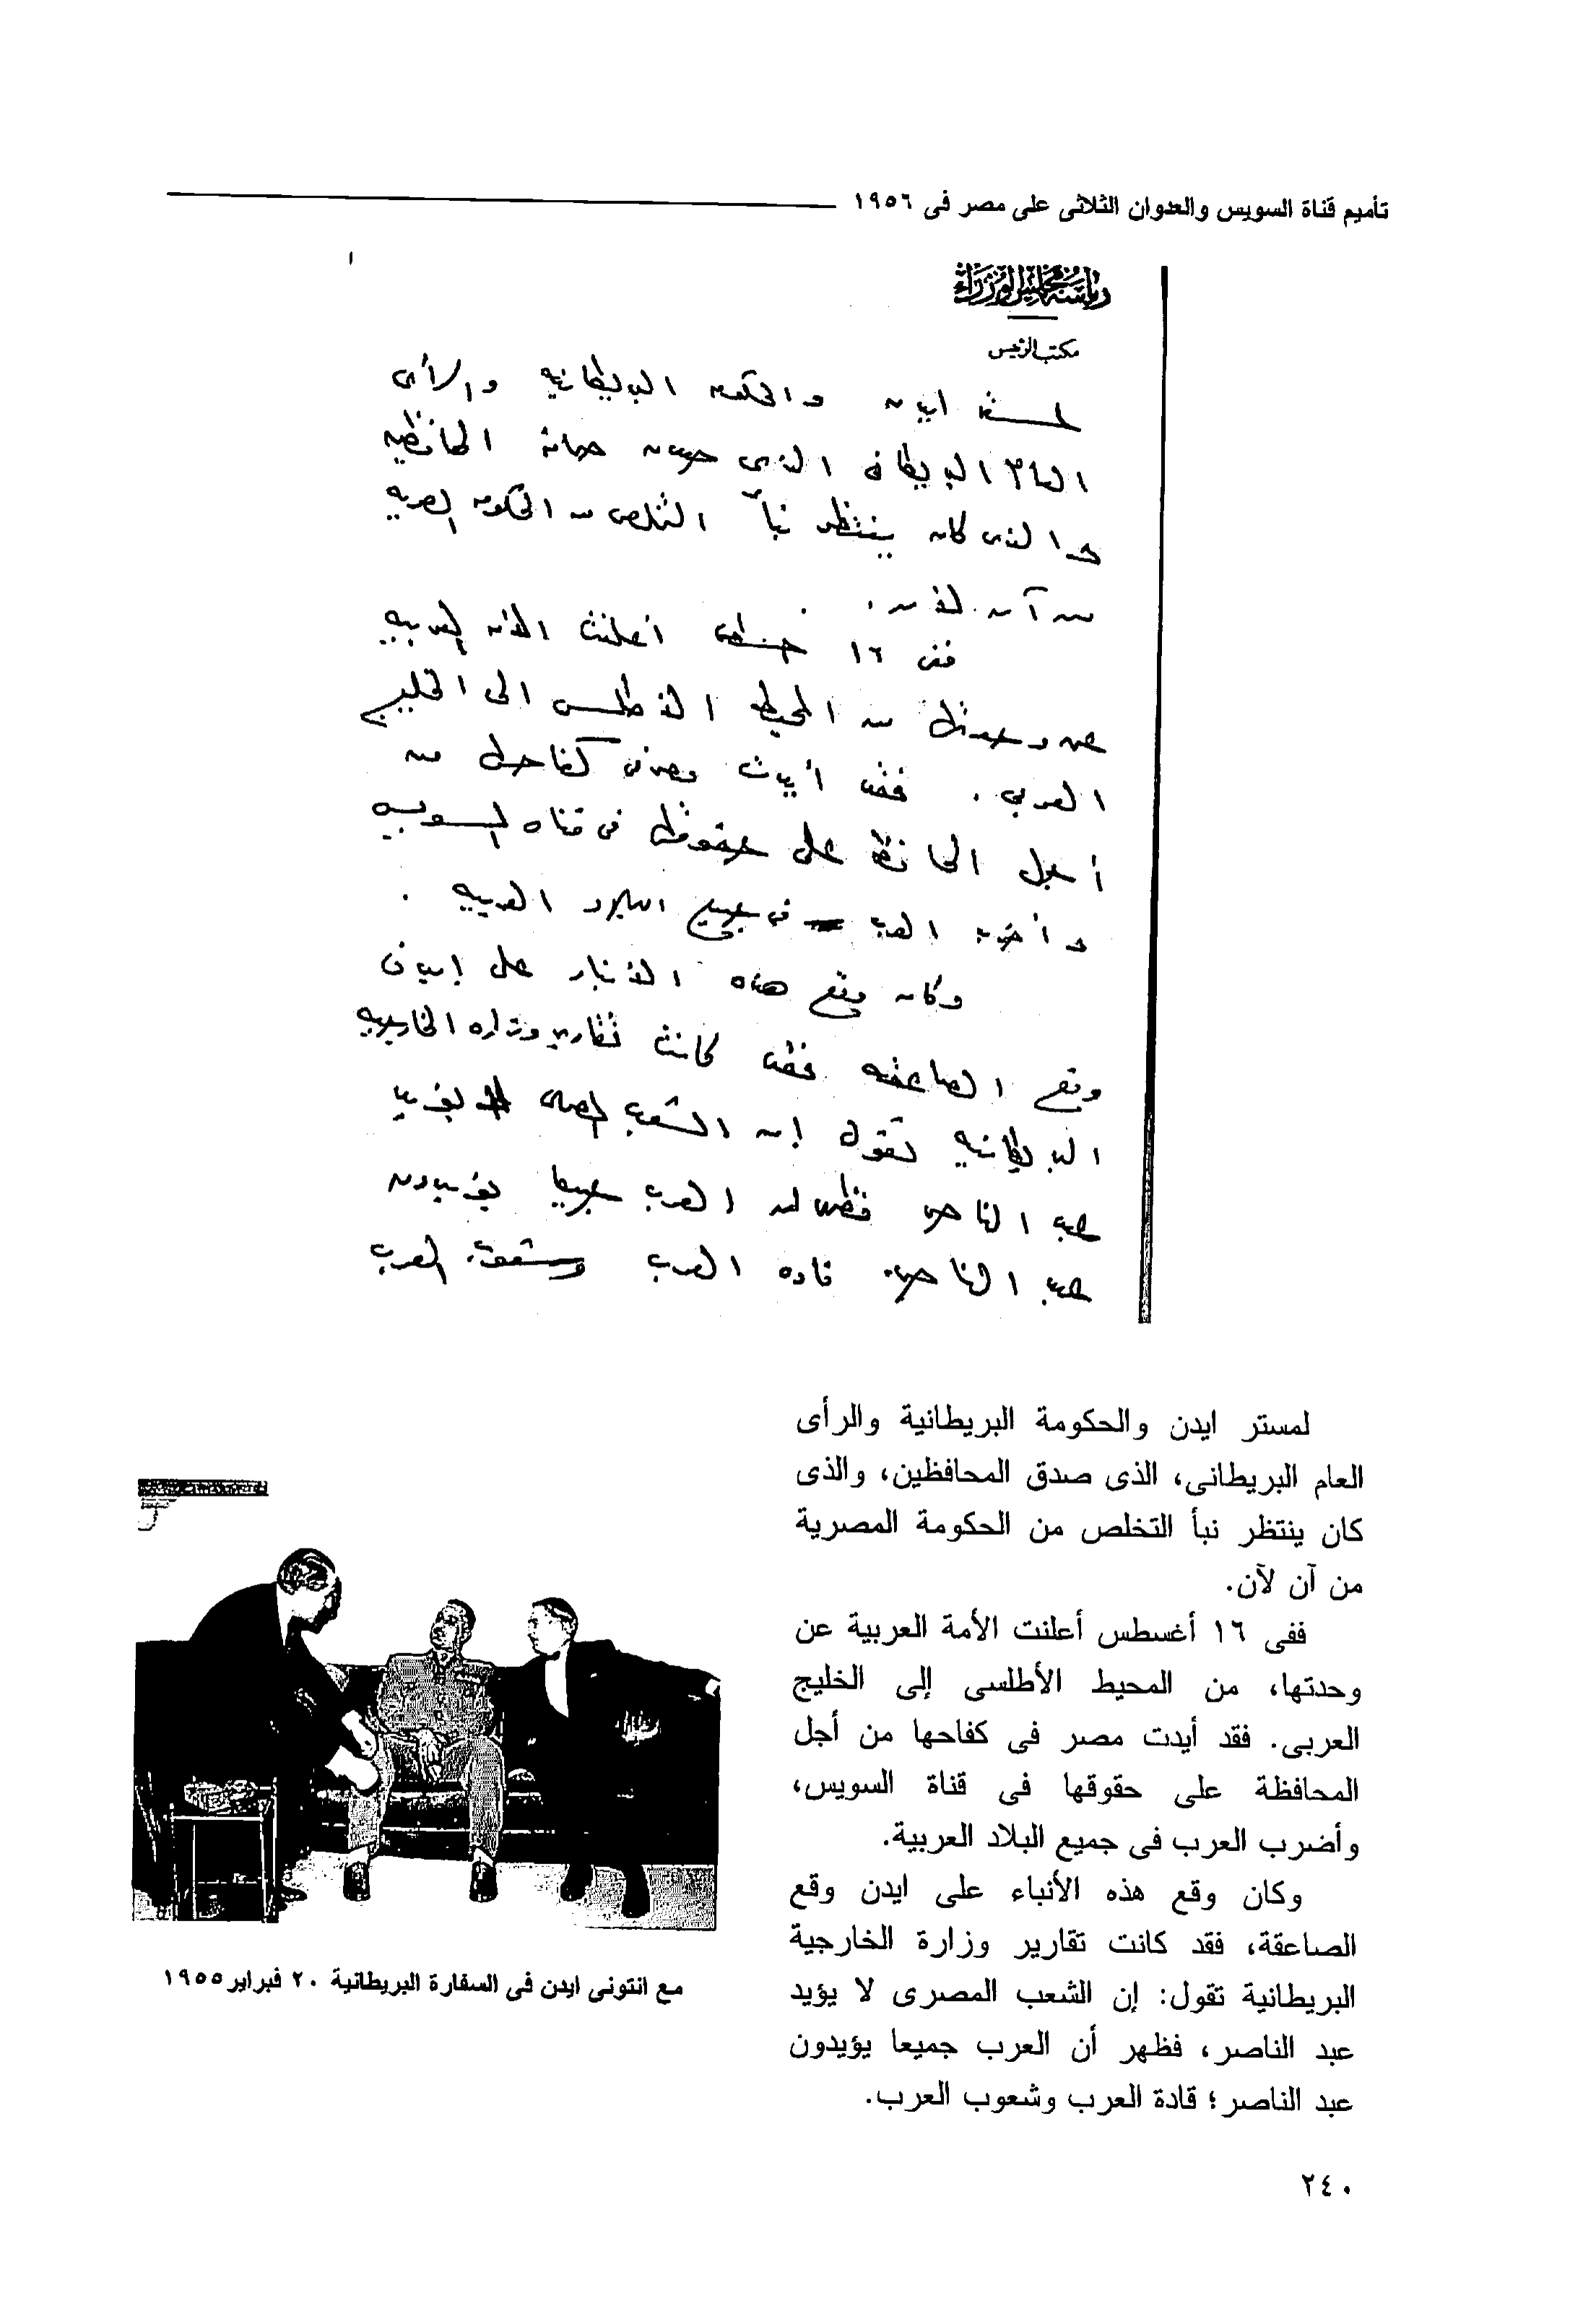 تأميم قناة السويس والعدوان الثلاثى على مصر فى ١٩٥٦
رئاسة مجلس الوزراء
مكتب الرئيس
لمستر ايدن والحكومه البريطانيه والرأى
العام البريطانى الذى صدق المحافظين
والذى كان ينتظر نبأ التخلص من الحكومه المصريه
من آن لآن .
ففى ١٦ اغسطس أعلنت الأمه العربيه
عن وحدتها من المحيط الأطلسى الى الخليج
العربى . فقد أيدت مصر فى كفاحها من
أجل المحافظه على حقوقها فى قناه السويس
وأضرب العرب فى جميع البلاد العربيه .
وكان وقع هذه الأنباء على ايدن
وقع الصاعقه فقد كانت تقارير وزاره الخارجيه
البريطانيه تقول إن الشعب المصرى لا يؤيد
عبد الناصر فظهر أن العرب جميعا يؤيدون
عبد الناصر قاده العرب وشعوب العرب
لمستر ايدن والحكومة البريطانية والرأى
العام البريطانى، الذى صدق المحافظين، والذى
كان ينتظر نبأ التخلص من الحكومة المصرية
من آن لآن.
ففى ١٦ أغسطس أعلنت الأمة العربية عن
وحدتها، من المحيط الأطلسى إلى الخليج
العربى. فقد أيدت مصر فى كفاحها من أجل
المحافظة على حقوقها فى قناة السويس،
وأضرب العرب فى جميع البلاد العربية.
وكان وقع هذه الأنباء على ايدن وقع
الصاعقة، فقد كانت تقارير وزارة الخارجية
البريطانية تقول: إن الشعب المصرى لا يؤيد
عبد الناصر، فظهر أن العرب جميعا يؤيدون
عبد الناصر؛ قادة العرب وشعوب العرب.
مع انتونى ايدن فى السفارة البريطانية ٢٠ فبراير ١٩٥٥
٢٤٠